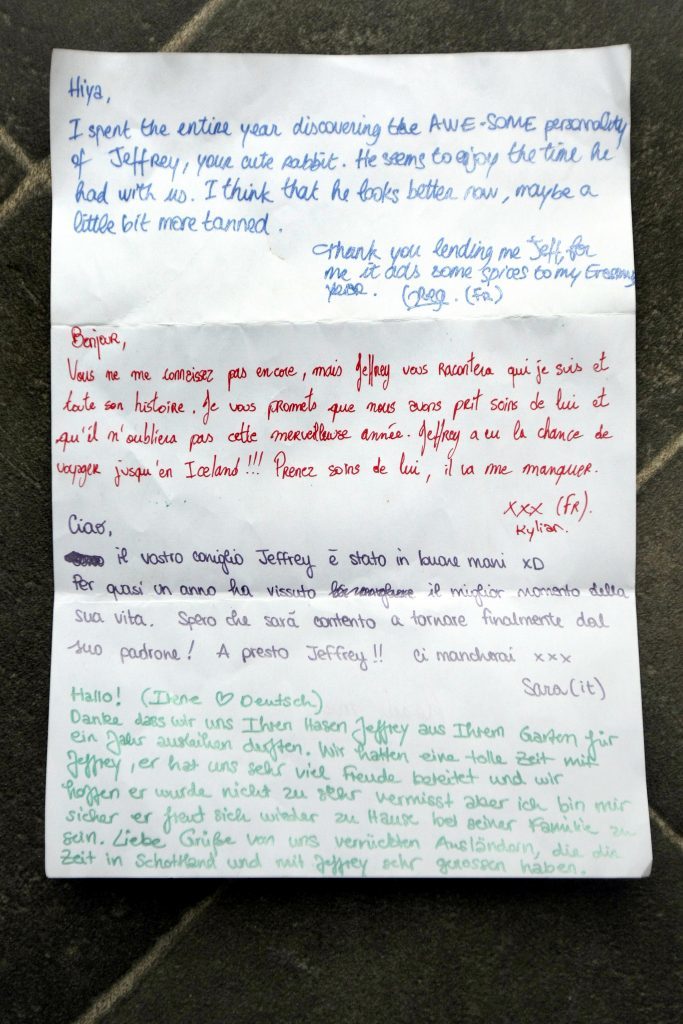 Hiya,
I spent the entire year discovering the AWE-SOME personality
of Jeffrey, your cute rabbit. He seems to enjoy the time he
had with us. I think that he looks better now, maybe a
little bit more tanned.
Thank you lending me Jeff, for
me it ads some spices to my Erasmus
year. Greg. (FR)
Bonjour,
Vous ne me connaissez pas encore, mais Jeffrey vous racontera qui je suis et
toute son histoire. Je vous promets que nous avons prit soins de lui et
qu'il n'oubliera pas cette merveilleuse année. Jeffrey a eu la chance de
voyager jusqu'en Iceland!!! Prenez soins de lui, il va me manquer.
xxx (FR).
Kylian.
Ciao,
il vostro coniglio Jeffrey è stato in buone mani xD
Per quasi un anno ha vissuto il miglior momento della
sua vita. Spero che sarà contento a tornare finalmente dal
suo padrone! A presto Jeffrey!! ci mancherai xxx
Sara (it)
Hallo! (Irene ♡ Deutsch)
Danke dass wir uns Ihren Hasen Jeffrey aus Ihrem Garten für
ein Jahr ausleihen durften. Wir hatten eine tolle Zeit mit
Jeffrey, er hat uns sehr viel Freude bereitet und wir
hoffen er wurde nicht zu sehr vermisst aber ich bin mir
sicher er freut sich wieder zu Hause bei seiner Familie zu
sein. Liebe Grüße von uns verrückten Ausländern, die die
Zeit in Schottland und mit Jeffrey sehr genossen haben.